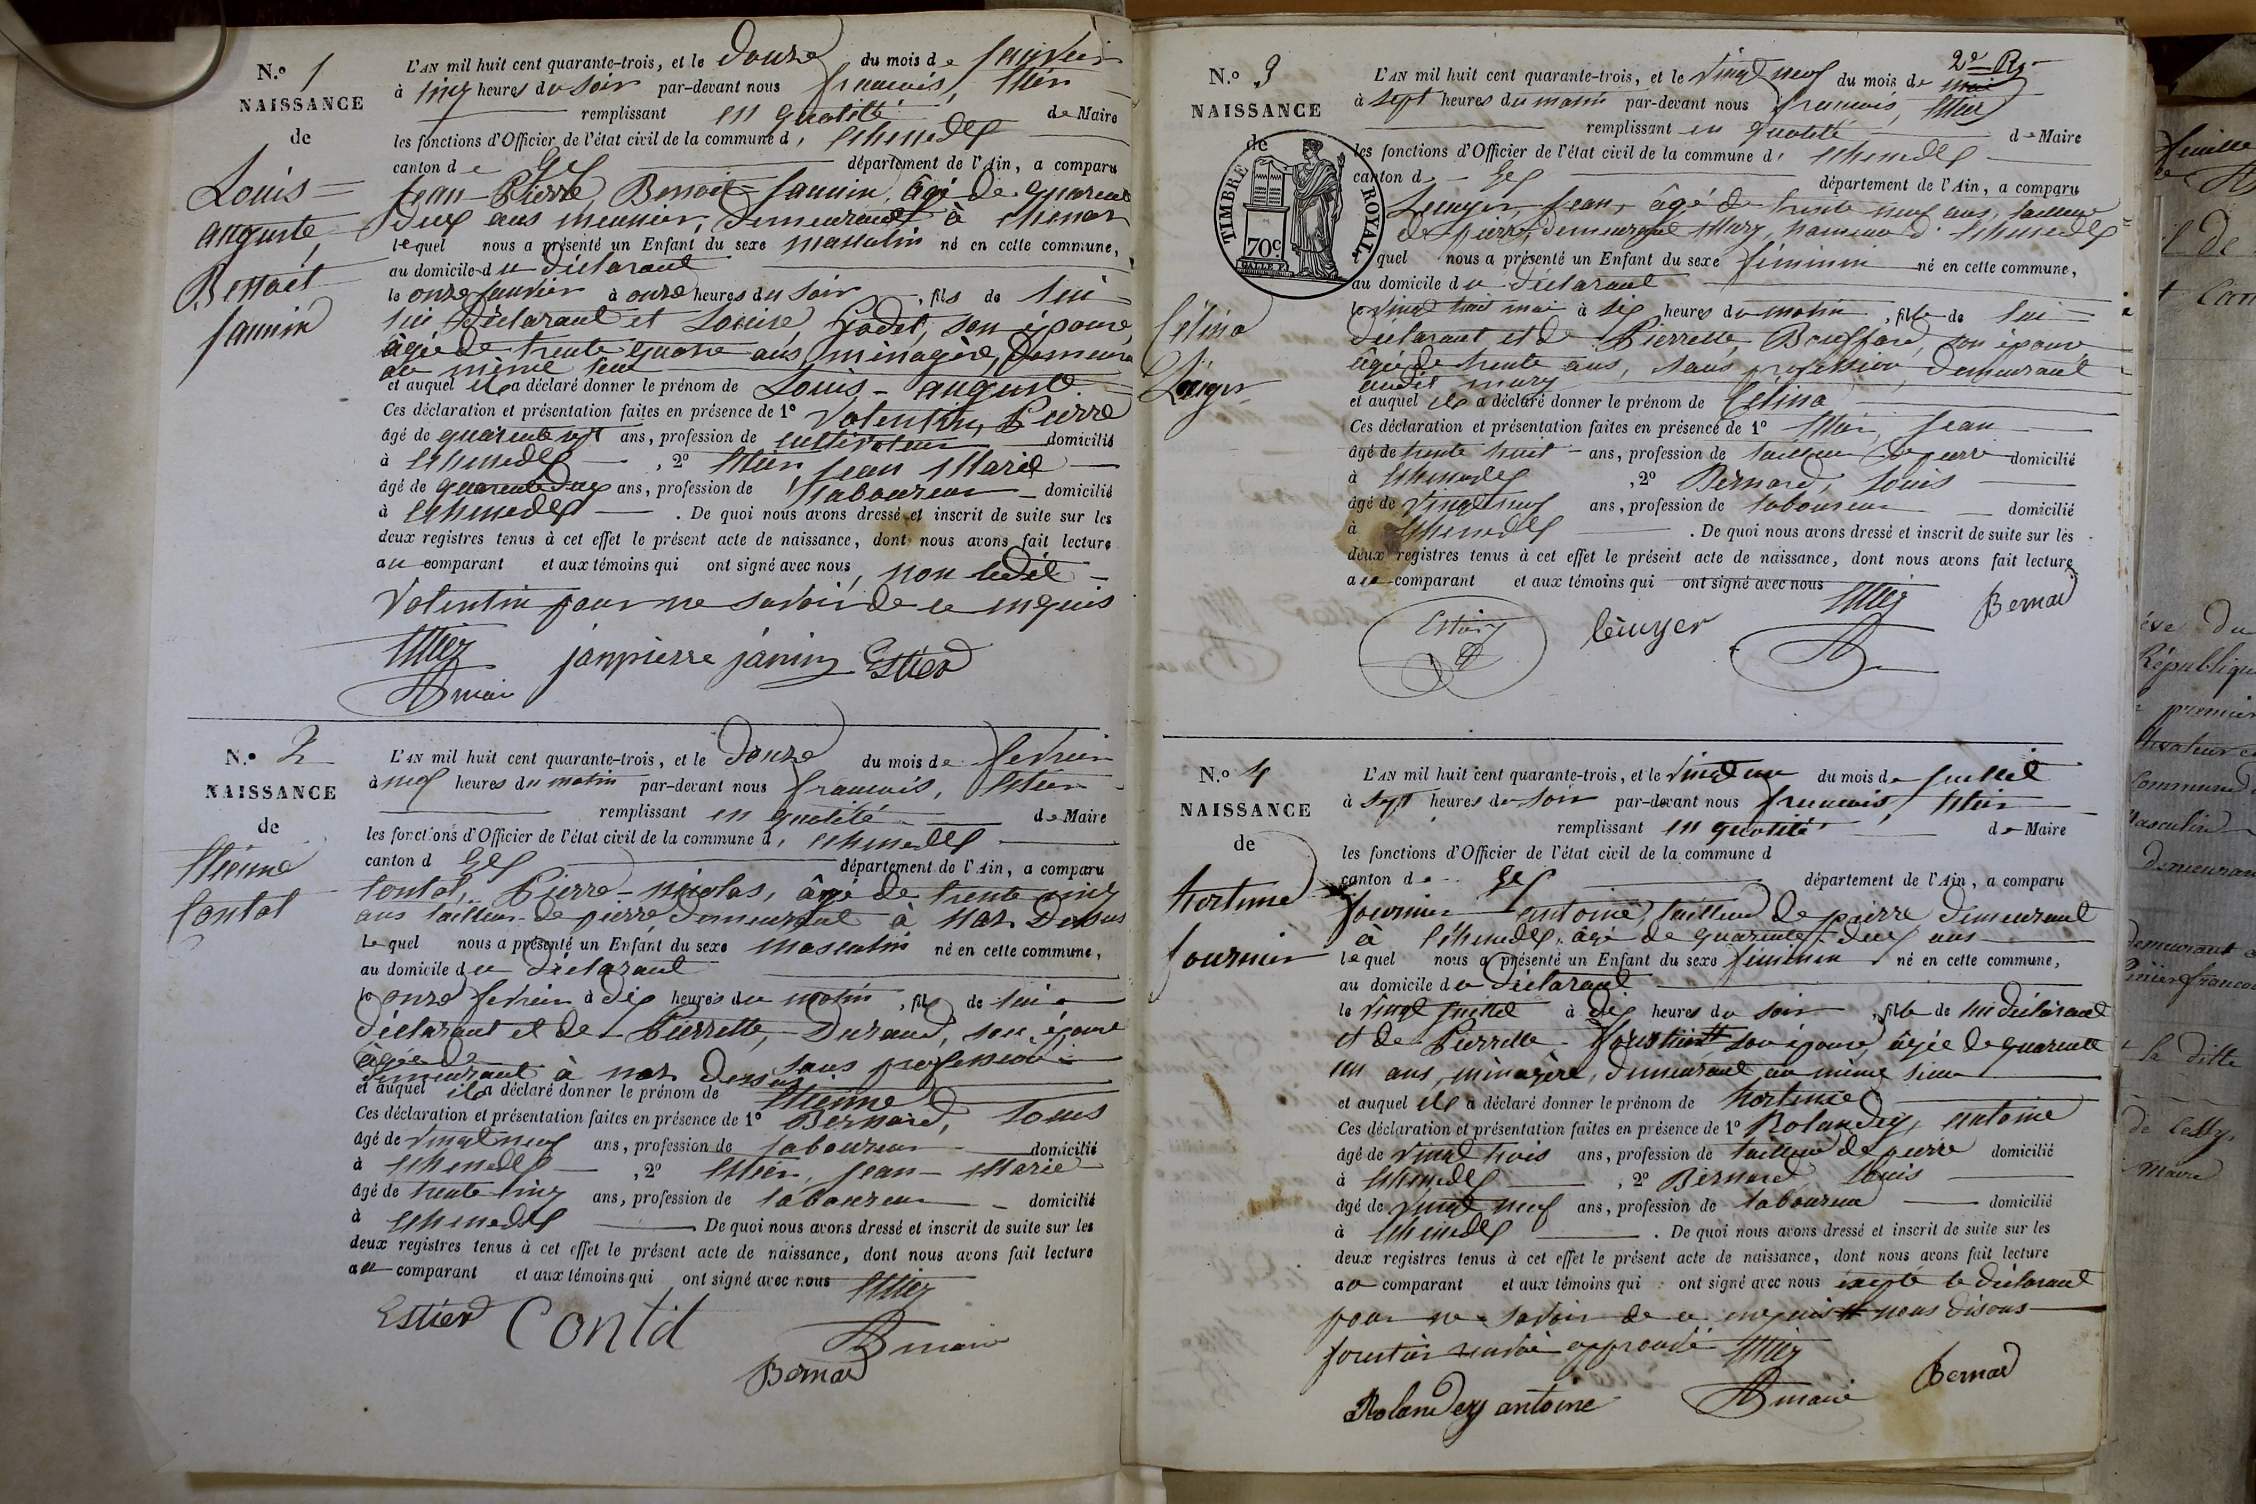 N.º 1
NAISSANCE
de
Louis =
auguste,
Benoit
Jannin
L'AN mil huit cent quarante-trois, et le Douze du mois de Janvier
à cinq heures du soir par-devant nous francois, Etier
remplissant en qualité de Maire
les fonctions d'Officier de l'état civil de la commune d'
canton de Gex département de l'Ain, a comparu
Jean-Pierre, Benoit Jannin, âgé de quarente
Deux ans meunier, Demeurant à
lequel nous a présenté un Enfant du sexe masculin né en cette commune,
au domicile du Déclarant
le onze Janvier à onze heures du soir, fils de lui
lui Déclarant et Louise, Godet, son épouse
âgée de trente quatre ans ménagère, Demeurant
au même lieu
et auquel il a déclaré donner le prénom de Louis - auguste
Ces déclaration et présentation faites en présence de 1º Valentin, Pierre
âgé de quarente sept ans, profession de cultivateur domicilié
à , 2º Jean Marie
âgé de quarente Deux ans, profession de laboureur domicilié
à . De quoi nous avons dressé et inscrit de suite sur les
deux registres tenus à cet effet le présent acte de naissance, dont nous avons fait lecture
au comparant et aux témoins qui ont signé avec nous, non ledit
Valentin pour ne savoir de ce enquis
janpierre janin Estier
maire
N.º 2
NAISSANCE
de
Etienne
Contat
L'AN mil huit cent quarante-trois, et le Douze du mois de fevrier
à neuf heures du matin par-devant nous francois,
remplissant en qualité de Maire
les fonctions d'Officier de l'état civil de la commune d'
canton d Gex département de l'Ain, a comparu
Contat, Pierre-nicolas, âgé de trente cinq
ans tailleur de pierre Demeurant à Naz Dessus
lequel nous a présenté un Enfant du sexe masculin né en cette commune,
au domicile du Déclarant
le onze fevrier à Dix heures du matin, fils de lui
Déclarant et de Pierrette, Durand, son épouse
âgée de sans profession
Demeurant à naz Dessus
et auquel il a déclaré donner le prénom de Etienne
Ces déclaration et présentation faites en présence de 1º Bernard, Louis
âgé de vingt neuf ans, profession de laboureur domicilié
à , 2º Jean-Marie
âgé de trente cinq ans, profession de laboureur domicilié
à De quoi nous avons dressé et inscrit de suite sur les
deux registres tenus à cet effet le présent acte de naissance, dont nous avons fait lecture
au comparant et aux témoins qui ont signé avec nous
Estier Contat
maire
Bernard
2e Rg
N.º 3
NAISSANCE
de
TIMBRE ROYAL
70c.
Célina
L'AN mil huit cent quarante-trois, et le vingt neuf du mois de mai
à sept heures du matin par-devant nous francois,
remplissant en qualité de Maire
les fonctions d'Officier de l'état civil de la commune d'
canton de Gex département de l'Ain, a comparu
Jean, âgé de trente neuf ans, tailleur
de pierre, demeurant mury, hameau d'
quel nous a présenté un Enfant du sexe féminin né en cette commune,
au domicile du Déclarant
le vingt huit mai à six heures du matin, fille de lui
Déclarant et de Pierrette Bouffard, son épouse
âgée de trente ans, sans profession, Demeurant
audit mury
et auquel il a déclaré donner le prénom de Célina
Ces déclaration et présentation faites en présence de 1º Jean
âgé de trente huit ans, profession de tailleur de pierre domicilié
à , 2º Bernard, Louis
âgé de vingt neuf ans, profession de laboureur domicilié
à . De quoi nous avons dressé et inscrit de suite sur les
deux registres tenus à cet effet le présent acte de naissance, dont nous avons fait lecture
au comparant et aux témoins qui ont signé avec nous
Bernard
N.º 4
NAISSANCE
de
hortense
fournier
L'AN mil huit cent quarante-trois, et le vingt un du mois de Juillet
à sept heures du soir par-devant nous francois,
remplissant en qualité de Maire
les fonctions d'Officier de l'état civil de la commune d
canton de Gex département de l'Ain, a comparu
fournier antoine, tailleur de pierre Demeurant
à âgé de quarente-deux ans
lequel nous a présenté un Enfant du sexe féminin né en cette commune,
au domicile du Déclarant
le vingt Juillet à Dix heures du soir, fille de lui déclarant
et de Pierrette son épouse âgée de quarente
un ans, ménagère, Demeurant au même lieu
et auquel il a déclaré donner le prénom de hortense
Ces déclaration et présentation faites en présence de 1º Rolandez, antoine
âgé de vingt trois ans, profession de tailleur de pierre domicilié
à , 2º Bernard Louis
âgé de vingt neuf ans, profession de laboureur domicilié
à . De quoi nous avons dressé et inscrit de suite sur les
deux registres tenus à cet effet le présent acte de naissance, dont nous avons fait lecture
au comparant et aux témoins qui ont signé avec nous excepté le déclarant
pour ne savoir de ce enquis nous disons
approuvé
Rolandez antoine maire Bernard
République
premier
masculin
la ditte
maire